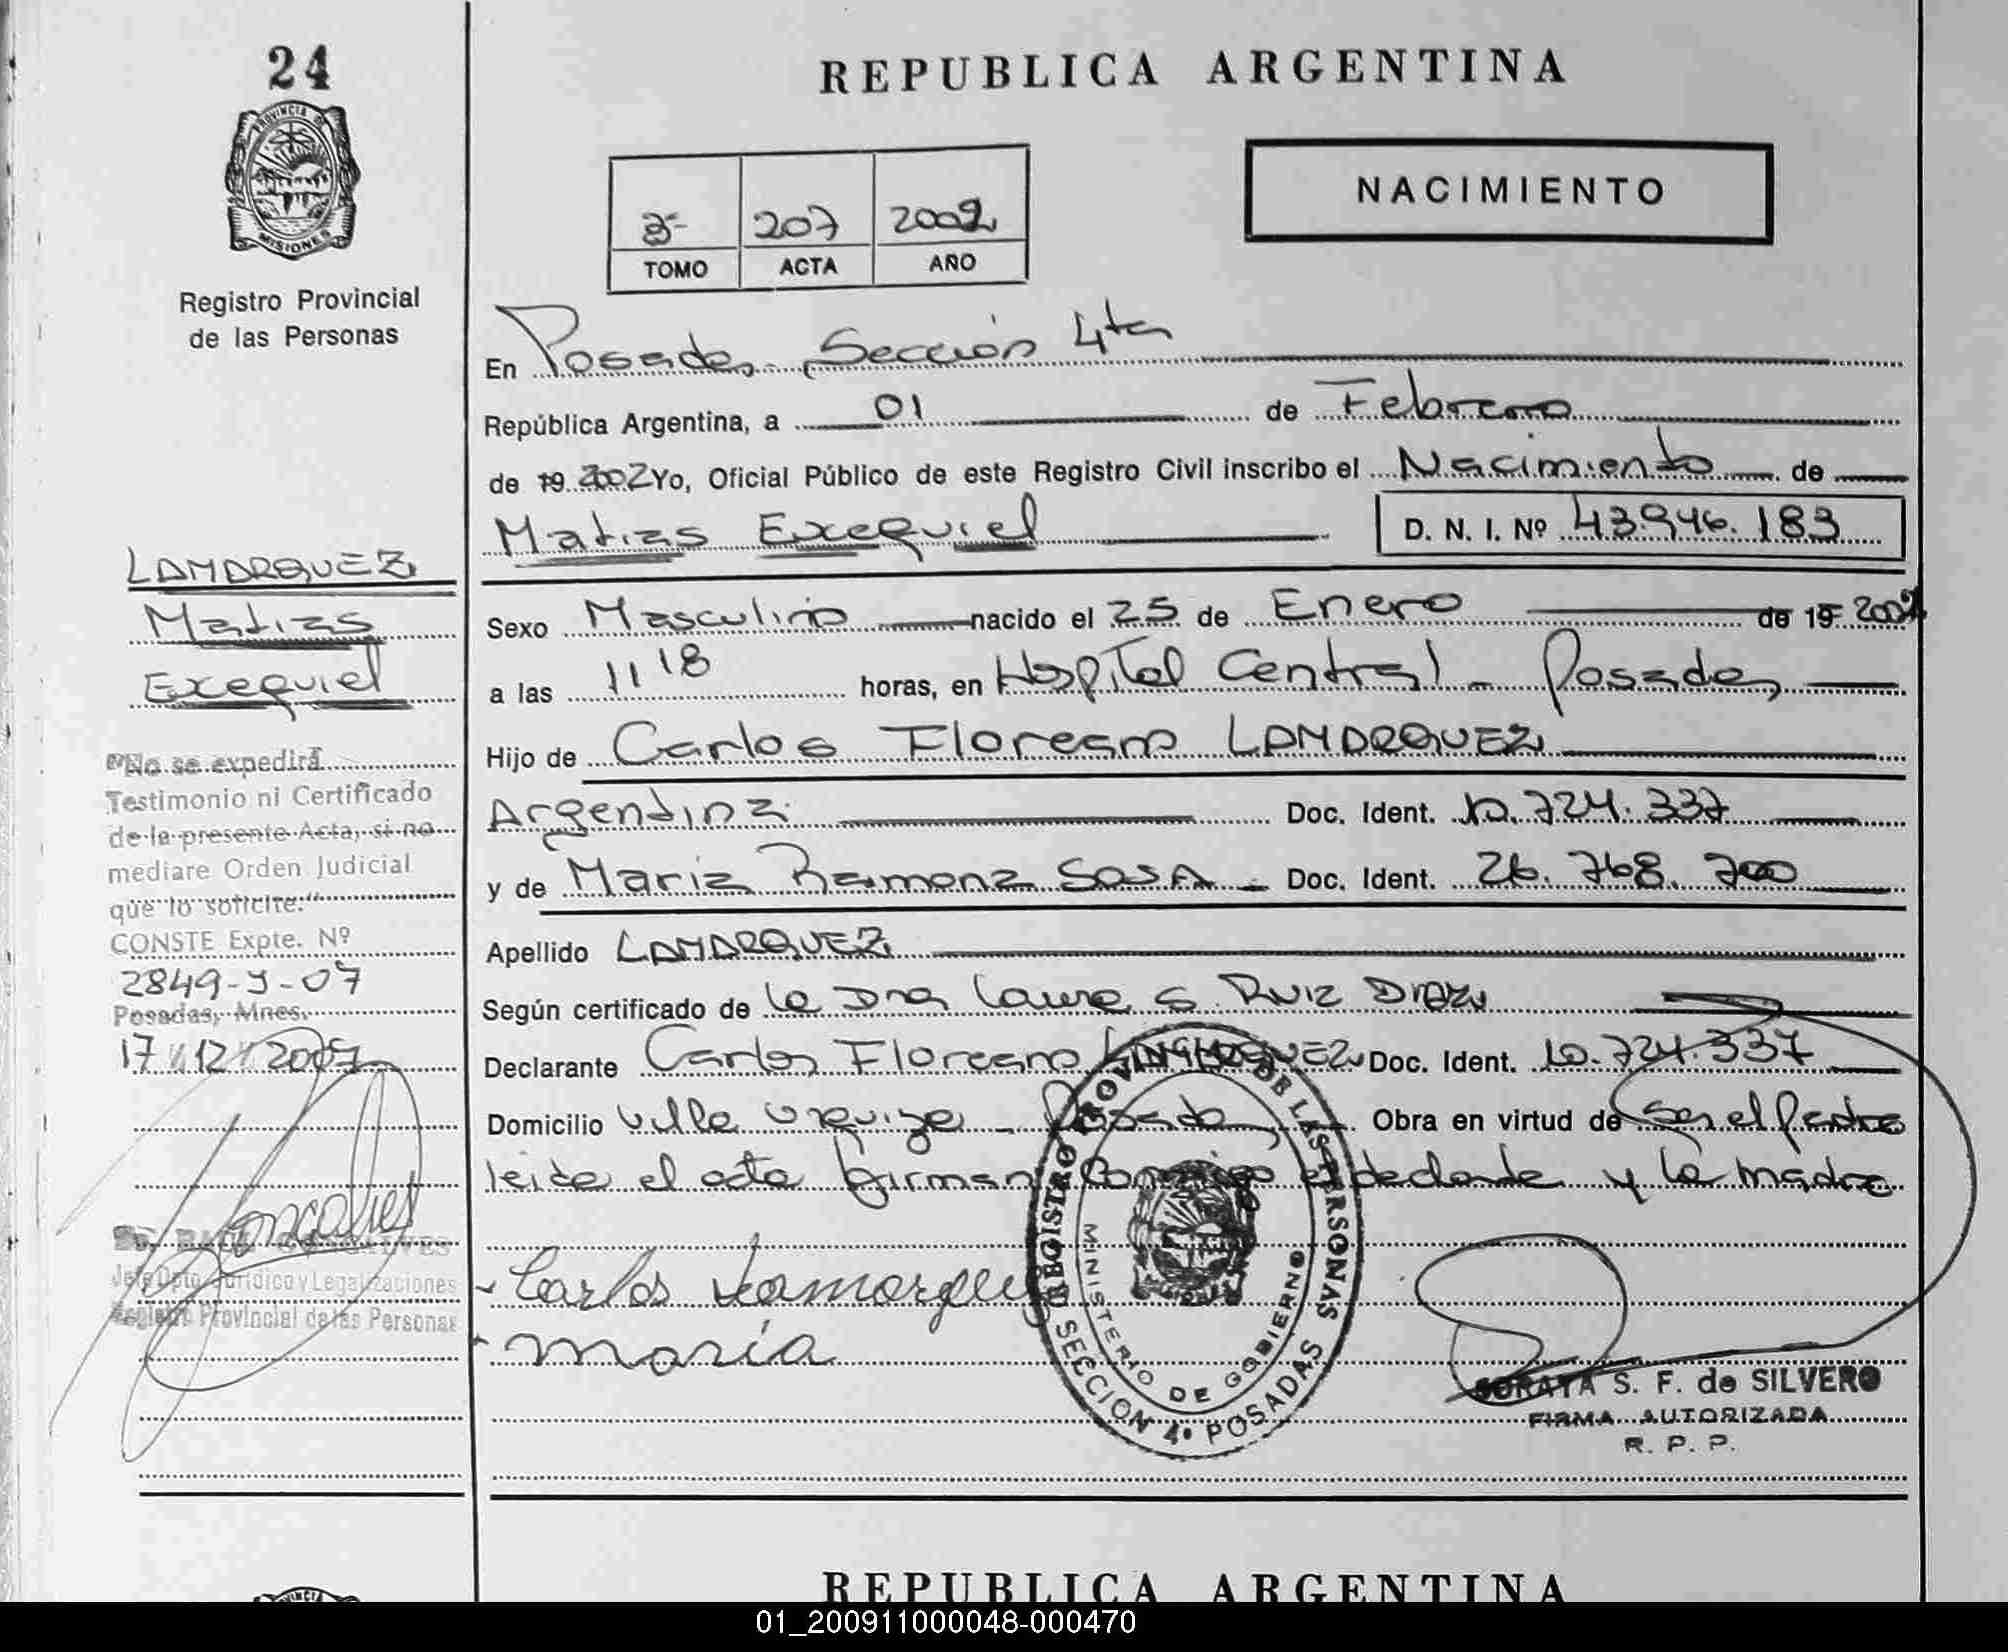 24
PROVINCIA DE
MISIONES
Registro Provincial
de las Personas
LAMARQUEZ
Matias
Exequiel
"No se expedirá
Testimonio ni Certificado
de la presente Acta, si no
mediare Orden Judicial
que lo solicite."
CONSTE Expte. Nº
2849-9-07
Posadas, Mnes.
17/12/2007
RAUL GONCALVES
Jefe Dpto. Jurídico y Legalizaciones
Registro Provincial de las Personas
REPUBLICA ARGENTINA
NACIMIENTO
207 2002
TOMO ACTA AÑO
En Posadas Sección 4ta
República Argentina, a 01 de Febrero
de 19 2002 Yo, Oficial Público de este Registro Civil inscribo el Nacimiento de
Matias Exequiel D. N. I. Nº 43.946.183
Sexo Masculino nacido el 25 de Enero de 19 2002
a las 11 18 horas, en Hospital Central - Posadas
Hijo de Carlos Floreano LAMARQUEZ
Argentina Doc. Ident. 10.724.337
y de Maria Ramona SOSA - Doc. Ident. 26.768.700
Apellido LAMARQUEZ
Según certificado de la Dra Laura S. RUIZ DIAZ
Declarante Carlos Floreano LAMARQUEZ Doc. Ident. 10.724.337
Domicilio Villa Urquiza - Posadas Obra en virtud de Ser el Padre
leida el acta firman Conmigo el declarante y la madre
Carlos Lamarquez
Maria
REGISTRO PROVINCIAL DE LAS PERSONAS
MINISTERIO DE GOBIERNO
SECCION 4º POSADAS
SORAYA S. F. de SILVERO
FIRMA AUTORIZADA
R. P. P.
REPUBLICA ARGENTINA
01_200911000048-000470